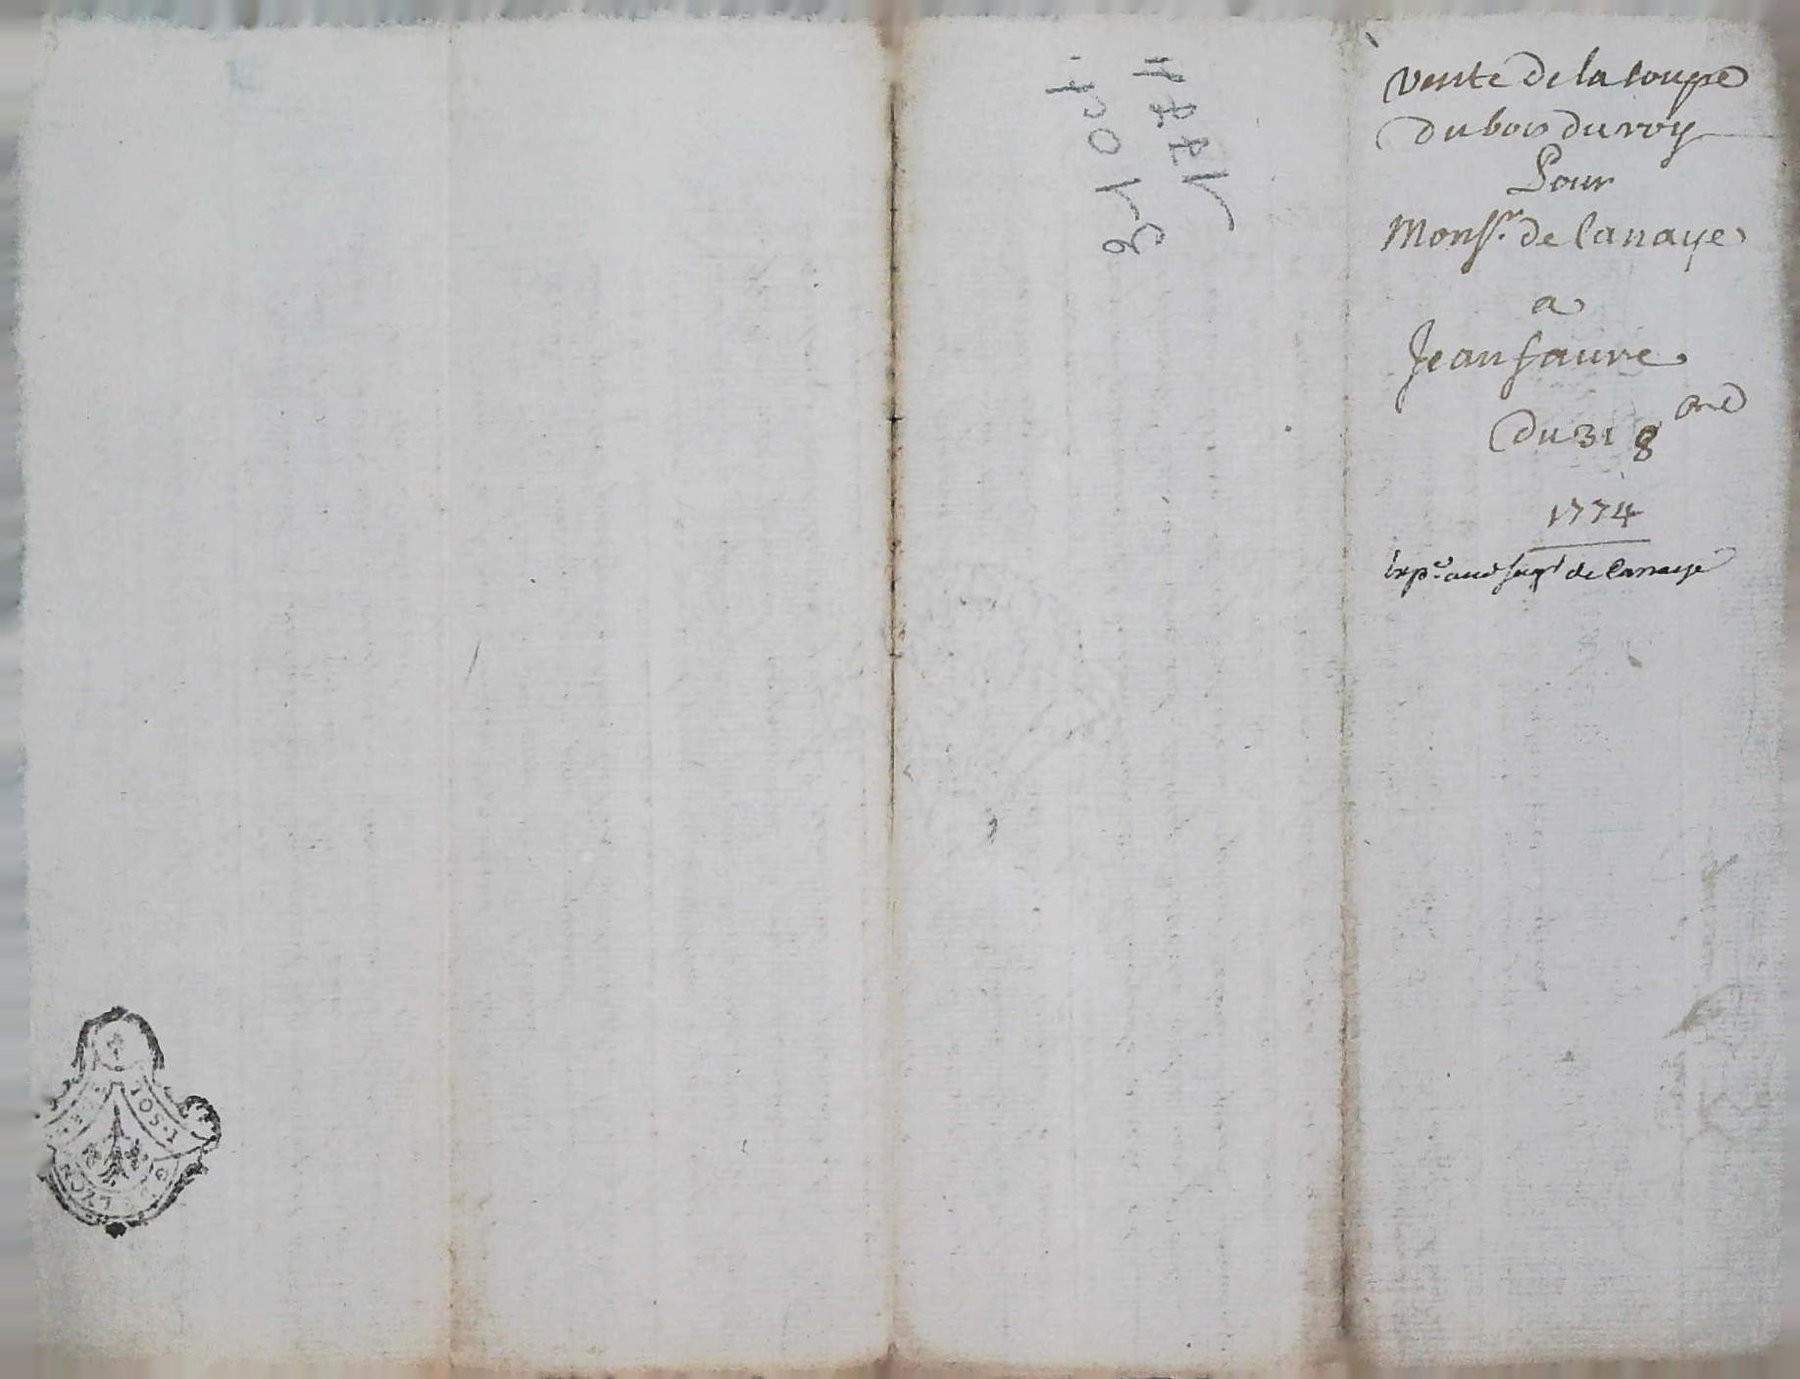 vente de la coupe
du bois du roy
Pour
Monsr. de Canaye
a
Jean faure
du 31 8bre
1774
Expe. aud de Canaye
1774
31 Oct.
1 SOL